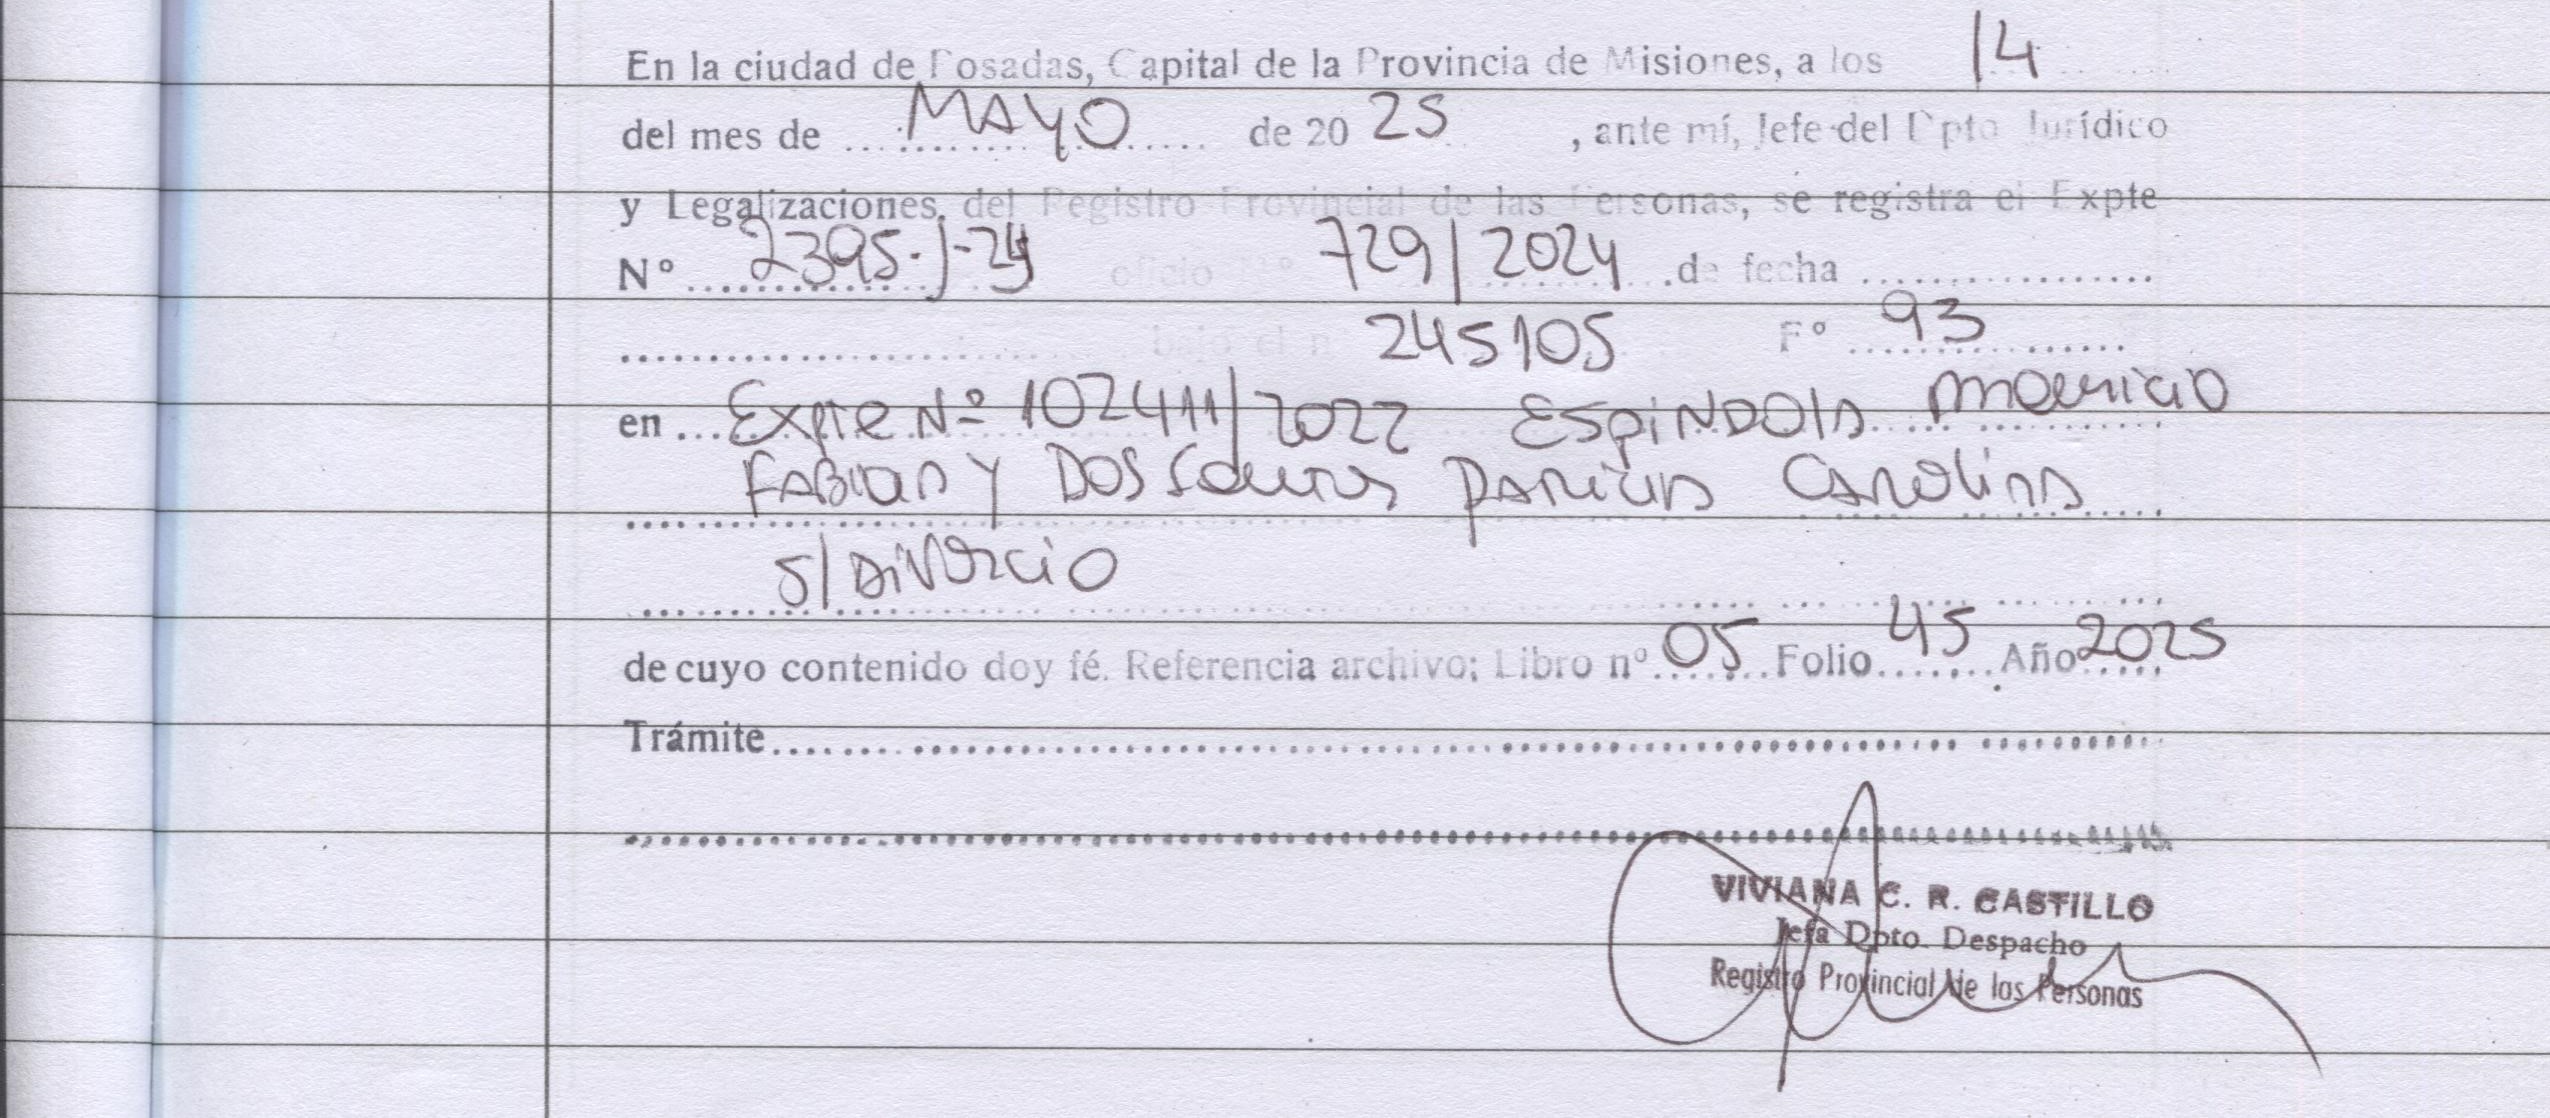 En la ciudad de Posadas, Capital de la Provincia de Misiones, a los 14
del mes de MAYO de 20 25 , ante mí, Jefe del Dpto Jurídico
y Legalizaciones, del Registro Provincial de las Personas, se registra el Expte
Nº 2395-J-24 oficio Nº 729/2024 de fecha
bajo el n 245105 Fº 93
en Expte Nº 102411/2022 ESPINDOLA Mauricio
FABIAN Y DOS Carolina
S/ DIVORCIO
de cuyo contenido doy fé. Referencia archivo: Libro nº 05 Folio 45 Año 2025
Trámite
VIVIANA C. R. CASTILLO
Jefa Dpto. Despacho
Registro Provincial de las Personas